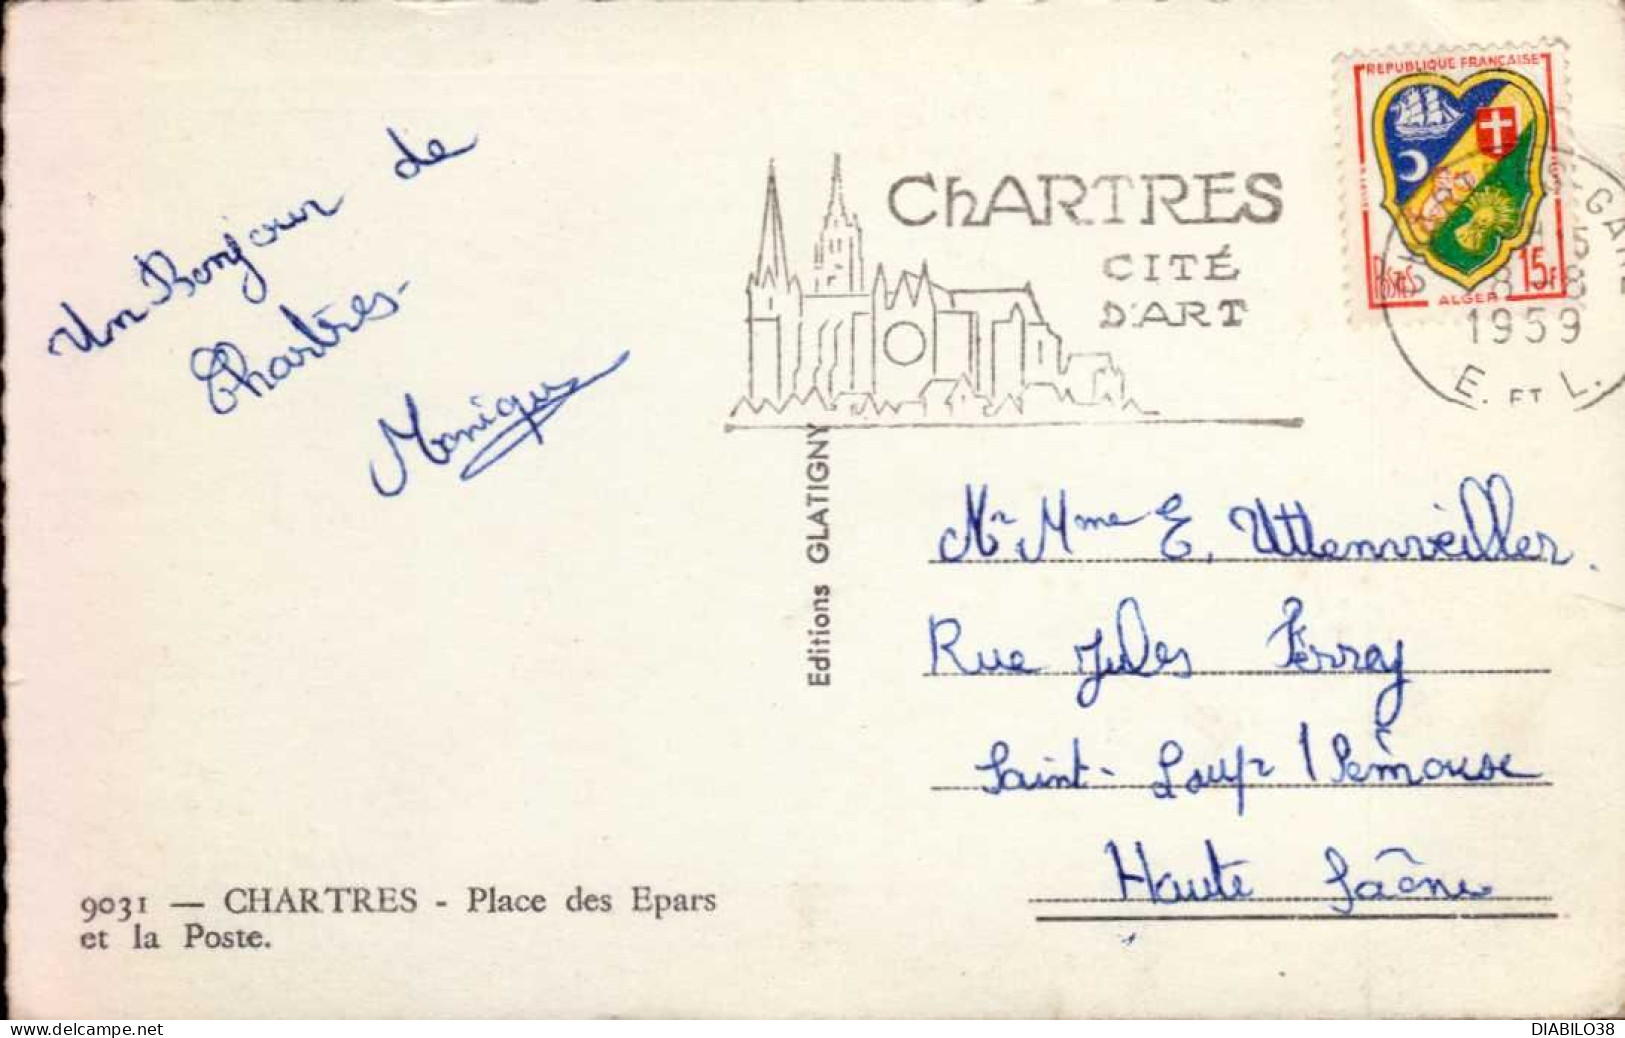 Un Bonjour de
Chartres.
Monique
ChARTRES
CITÉ
D'ART
REPUBLIQUE FRANÇAISE
POSTES
15F
ALGER
GARE
1959
E. ET L.
Editions GLATIGNY
Mr Mme E. Uttenweiller.
Rue Jules Ferrey
Saint-Loup / Semouse
Haute Saône
9031 — CHARTRES - Place des Epars
et la Poste.
www.delcampe.net
DIABILO38